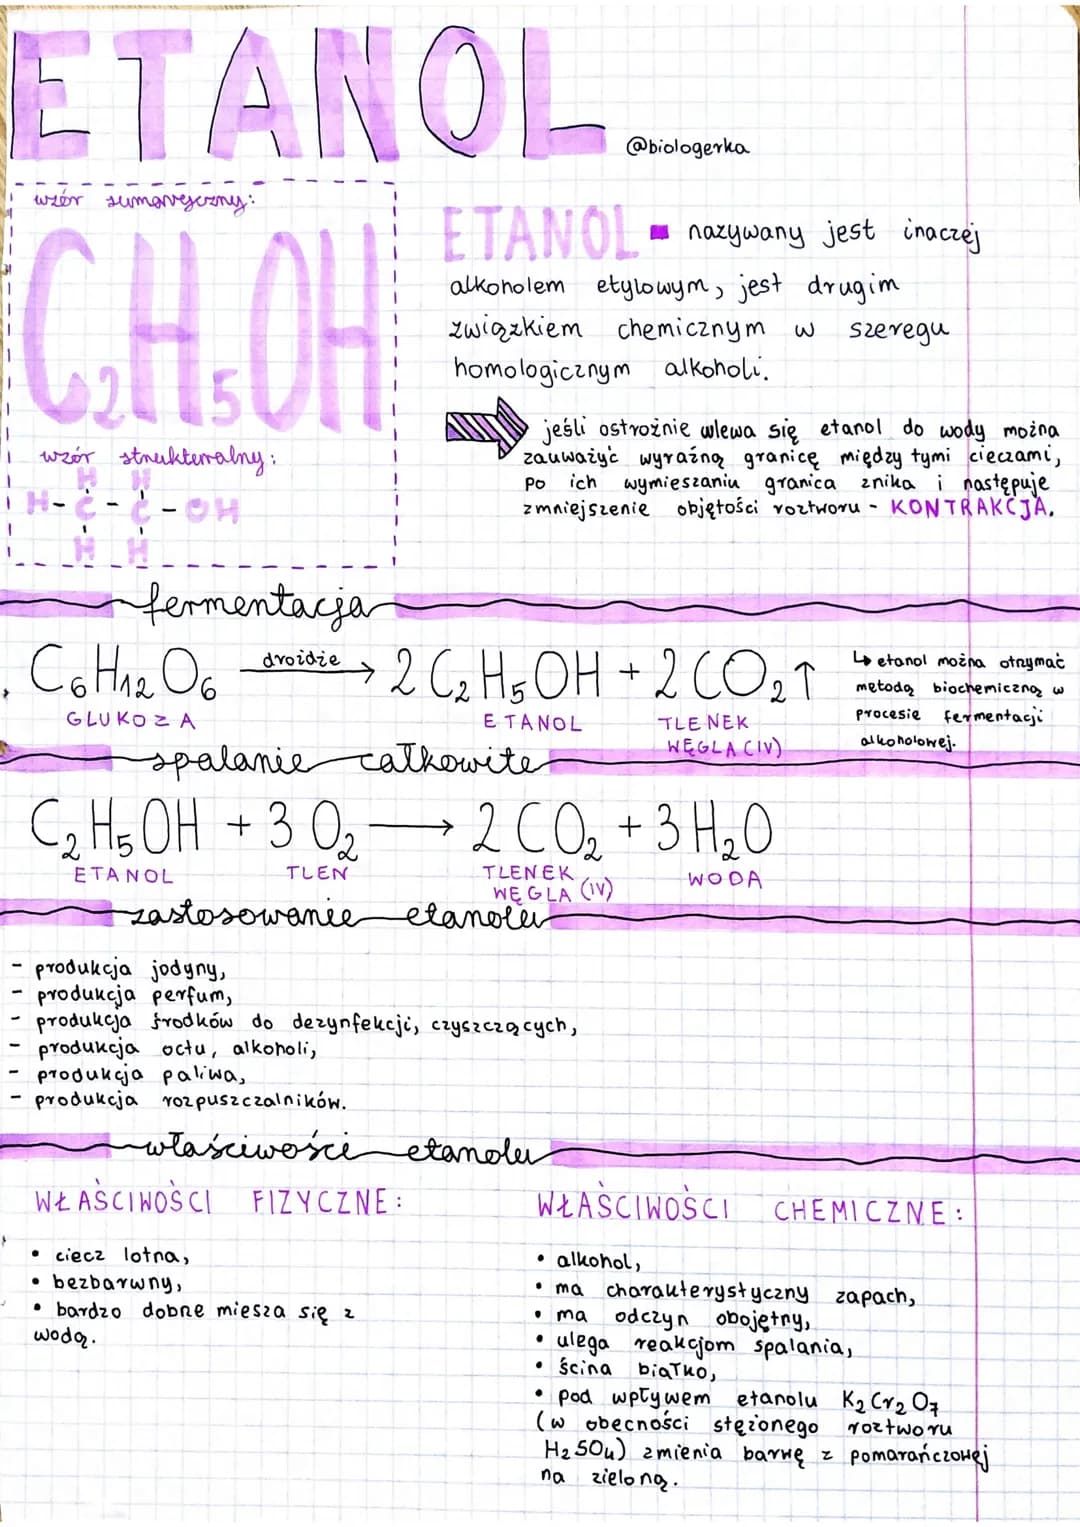 ETANOL
@biologerka
wzór sumaryczny:
C₂H₅OH
wzór strukturalny:
H H
H-C-C-OH
H H
ETANOL ▪ nazywany jest inaczej
alkoholem etylowym, jest drugim
związkiem chemicznym w szeregu
homologicznym alkoholi.
jeśli ostrożnie wlewa się etanol do wody można
zauważyć wyraźną granicę między tymi cieczami,
po ich wymieszaniu granica znika i następuje
zmniejszenie objętości roztworu - KONTRAKCJA.
fermentacja
C₆H₁₂O₆ drożdże → 2 C₂H₅OH + 2 CO₂↑
GLUKOZA ETANOL TLENEK
WĘGLA (IV)
↳ etanol można otrzymać
metodą biochemiczną w
procesie fermentacji
alkoholowej.
spalanie całkowite
C₂H₅OH + 3 O₂ → 2 CO₂ + 3 H₂O
ETANOL TLEN TLENEK WODA
WĘGLA (IV)
zastosowanie etanolu
- produkcja jodyny,
- produkcja perfum,
- produkcja środków do dezynfekcji, czyszczących,
- produkcja octu, alkoholi,
- produkcja paliwa,
- produkcja rozpuszczalników.
właściwości etanolu
WŁAŚCIWOŚCI FIZYCZNE:
• ciecz lotna,
• bezbarwny,
• bardzo dobrze miesza się z
wodą.
WŁAŚCIWOŚCI CHEMICZNE:
• alkohol,
• ma charakterystyczny zapach,
• ma odczyn obojętny,
• ulega reakcjom spalania,
• ścina białko,
• pod wpływem etanolu K₂Cr₂O₇
(w obecności stężonego roztworu
H₂SO₄) zmienia barwę z pomarańczowej
na zieloną.